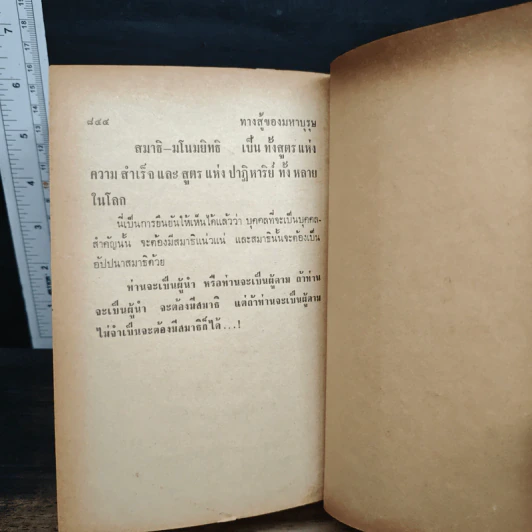 ๘๔๔ ทางสู้ของมหาบุรุษ
สมาธิ-มโนมยิทธิ เป็น ทั้งสูตร แห่ง
ความ สำเร็จ และ สูตร แห่ง ปาฏิหาริย์ ทั้ง หลาย
ในโลก
นี่เป็นการยืนยันให้เห็นได้แล้วว่า บุคคลที่จะเป็นบุคคล-
สำคัญนั้น จะต้องมีสมาธิแน่วแน่ และสมาธินั้นจะต้องเป็น
อัปปนาสมาธิด้วย
ท่านจะเป็นผู้นำ หรือท่านจะเป็นผู้ตาม ถ้าท่าน
จะเป็นผู้นำ จะต้องมีสมาธิ แต่ถ้าท่านจะเป็นผู้ตาม
ไม่จำเป็นจะต้องมีสมาธิก็ได้...!